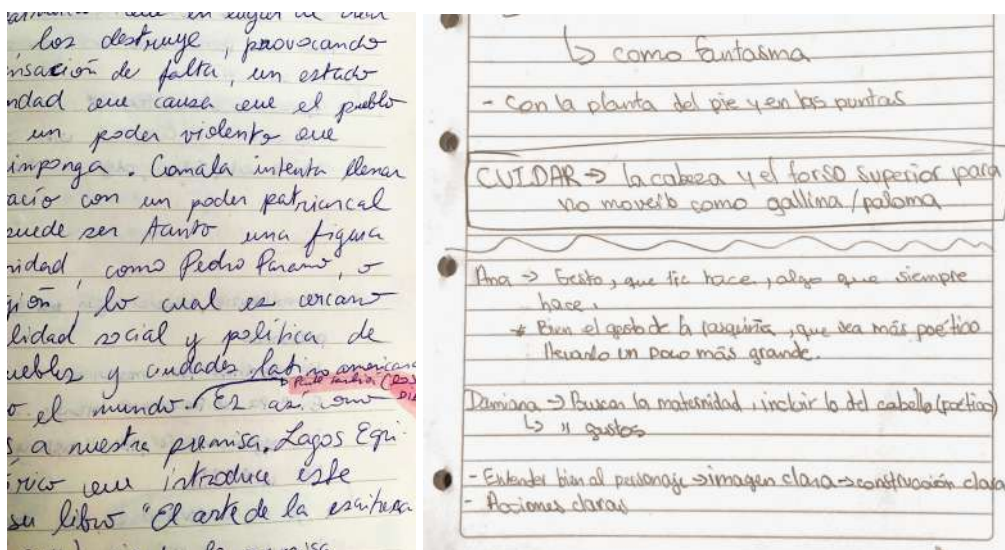 en lugar de
los destruye, provocando
nsación de falta, un estado
ndad que causa que el pueblo
un poder violento que
imponga. Comala intenta llenar
acío con un poder patriarcal
puede ser tanto una figura
ridad como Pedro Páramo, o
gión, lo cual es cercano
lidad social y política de
ueblos y ciudades latinoamericana
o el mundo. Es así como
s a nuestra premisa. Lagos Egri
írico que introduce este
su libro "El arte de la escritura
la premisa
↳ como fantasma
- Con la planta del pie y en las puntas
CUIDAR → la cabeza y el torso superior para
no moverlo como gallina/paloma
Ana → Gesto, que tic hace, algo que siempre
hace.
* Bien el gesto de la , que sea más poético
llevarlo un poco más grande.
Damiana → Buscar la maternidad, incluir lo del caballo (poético)
↳ " gustos
- Entender bien al personaje → imagen clara → construcción clara
- Acciones claras